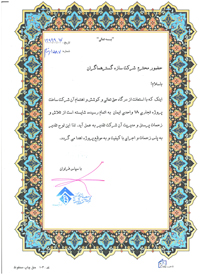 "بسمه تعالی"
تاریخ
شماره
حضور محترم شرکت سازه گستر هماگران
با سلام؛
اینک که با استعانت از درگاه حق تعالی و کوشش و اهتمام آن شرکت ساخت
پروژه تجاری ۱۸ واحدی ایمان به اتمام رسیده شایسته است از تلاش و
زحمات پرسنل و مدیریت آن شرکت تقدیر به عمل آید. لذا این لوح تقدیر
به پاس زحمات و اجرای با کیفیت و به موقع پروژه اهدا می گردد.
با سپاس فراوان